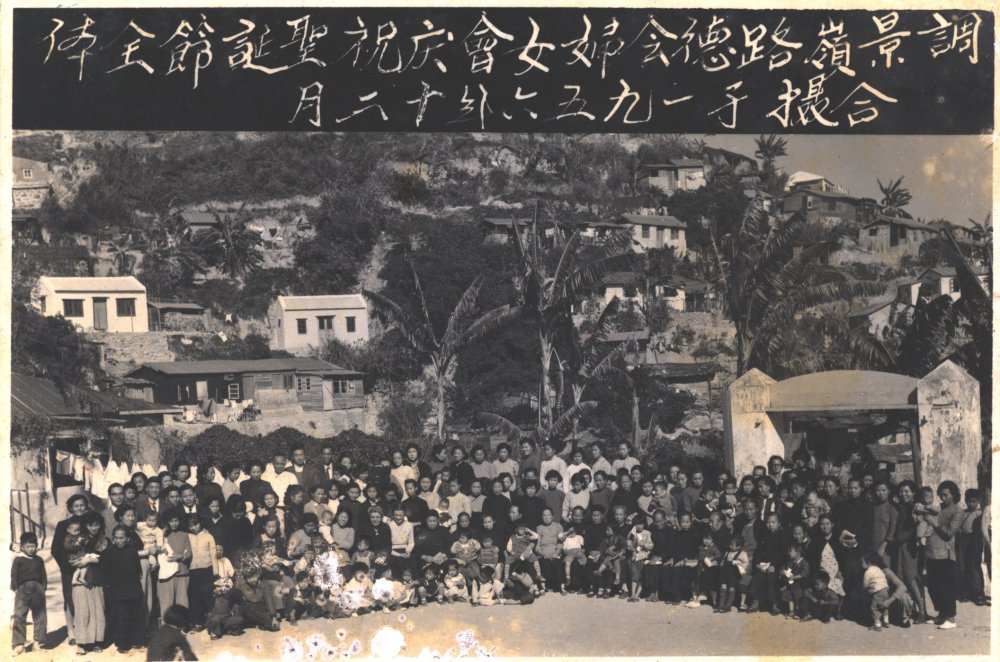 調景嶺路德会婦女會庆祝聖誕節全体
合攝于一九五六年十二月